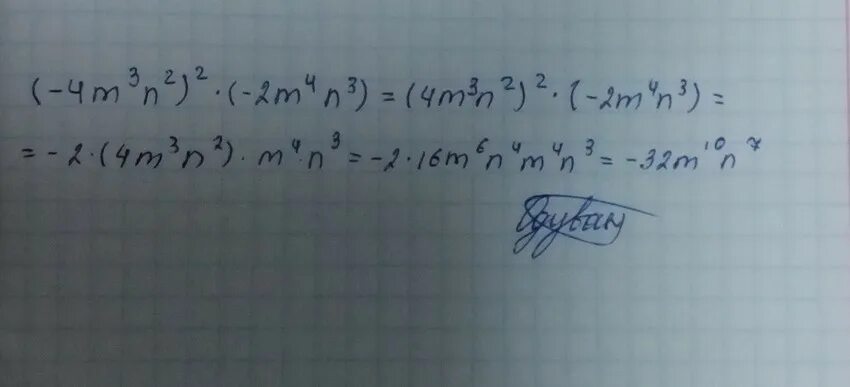 (-4m³n²)²·(-2m⁴n³)=(4m³n²)²·(-2m⁴n³)=
=-2·(4m³n²)·m⁴·n³=-2·16m⁶n⁴m⁴n³=-32m¹⁰n⁷